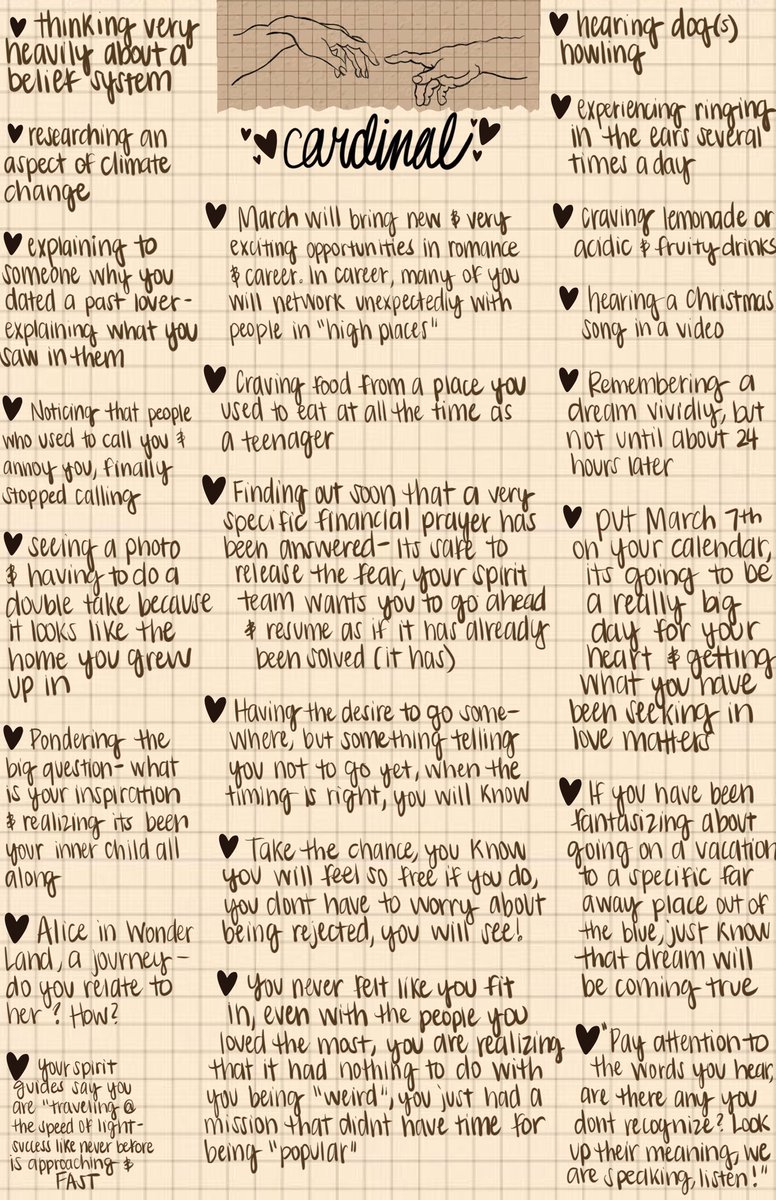 ♥ thinking very
heavily about a
belief system
♥ researching an
aspect of climate
change
♥ explaining to
someone why you
dated a past lover-
explaining what you
saw in them
♥ Noticing that people
who used to call you &
annoy you, finally
stopped calling
♥ seeing a photo
& having to do a
double take because
it looks like the
home you grew
up in
♥ Pondering the
big question- what
is your inspiration
& realizing its been
your inner child all
along
♥ Alice in Wonder
Land, a journey-
do you relate to
her? How?
♥ Your spirit
guides say you
are "traveling @
the speed of light-
success like never before
is approaching &
FAST
cardinal
♥ March will bring new & very
exciting opportunities in romance
& career. In career, many of you
will network unexpectedly with
people in "high places"
♥ Craving food from a place you
used to eat at all the time as
a teenager
♥ Finding out soon that a very
specific financial prayer has
been answered- its safe to
release the fear, your spirit
team wants you to go ahead
& resume as if it has already
been solved (it has)
♥ Having the desire to go some-
where, but something telling
you not to go yet, when the
timing is right, you will know
♥ Take the chance, you know
you will feel so free if you do,
you dont have to worry about
being rejected, you will see!
♥ You never felt like you fit
in, even with the people you
loved the most, you are realizing
that it had nothing to do with
you being "weird", you just had a
mission that didnt have time for
being "popular"
♥ hearing dog(s)
howling
♥ experiencing ringing
in the ears several
times a day
♥ craving lemonade or
acidic & fruity drinks
♥ hearing a Christmas
song in a video
♥ Remembering a
dream vividly, but
not until about 24
hours later
♥ put March 7th
on your calendar,
its going to be
a really big
day for your
heart & getting
what you have
been seeking in
love matters
♥ If you have been
fantasizing about
going on a vacation
to a specific far
away place out of
the blue, just know
that dream will
be coming true
♥ "Pay attention to
the words you hear,
are there any you
dont recognize? Look
up their meaning, we
are speaking, listen!"